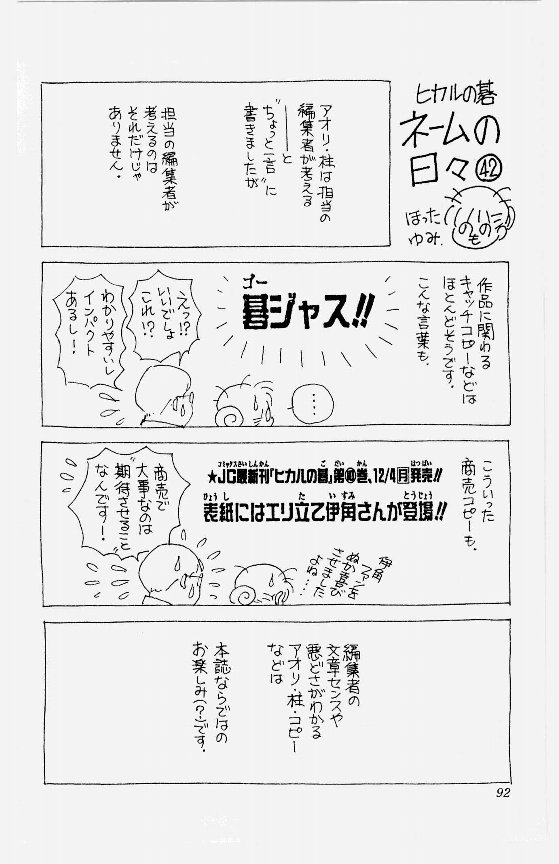 ヒカルの碁
ネームの
日々㊷
ほった
ゆみ.
のの
もの
アオリ・柱は担当の
編集者が考える
――と
“ちょっと一言”に
書きましたが
担当の編集者が
考えるのは
それだけじゃ
ありません.
作品に関わる
キャッチコピーなどは
ほとんどそうです.
こんな言葉も.
ゴー
碁ジャス!!
…
えっ!?
いいでしょ
これ!?
わかりやすいし
インパクト
あるし!
こういった
商売コピーも.
コミックスさいしんかん ご だい かん はつばい
★JC最新刊「ヒカルの碁」第⑩巻、12/4月発売!!
ひょうし た いすみ とうじょう
表紙にはエリ立て伊角さんが登場!!
伊角
ファンを
ぬか喜び
させました
よね…
商売で
大事なのは
“期待させること”
なんです!
編集者の
文章センスや
悪どさがわかる
アオリ・柱・コピー
などは
本誌ならではの
お楽しみ(?)です.
92